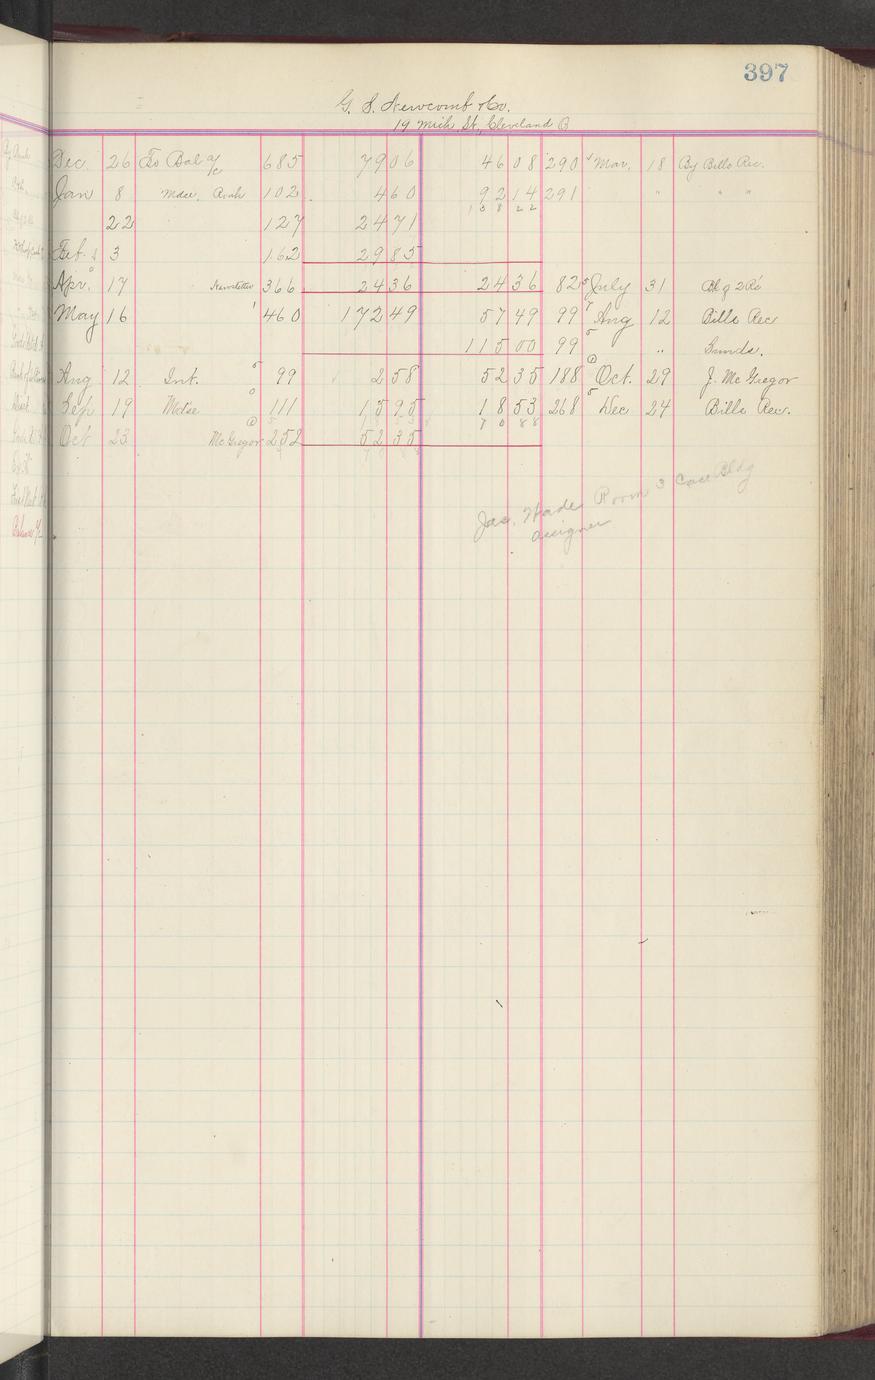 397
G. S. Newcomb & Co.
19 Mich. St, Cleveland O
Dec. 26 To Bal a/c 685 79 06 46 08 290 Mar. 18 By Bills Rec.
Jan 8 Mdse. 102 4 60 92 14 291 " " "
138 22
22 127 24 71
Feb. 3 162 29 85
Apr. 17 366 24 36 24 36 82 July 31
May 16 460 172 49 57 49 99 Aug 12 Bills Rec
115 00 99 " Sunds.
Aug 12 Int. 99 2 58 52 35 188 Oct. 29 J. McGregor
Sep 19 Mdse 111 15 95 18 53 268 Dec 24 Bills Rec.
70 88
Oct 23 McGregor 252 52 35
Jas. Wade Room 3 Case Bldg
Assignee